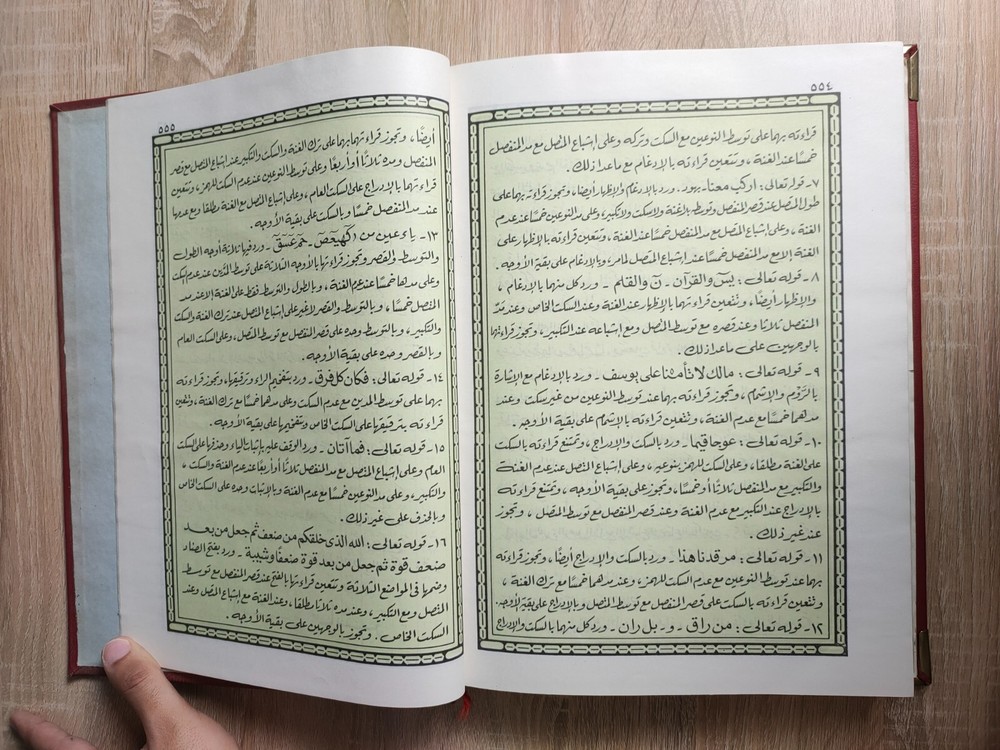 ٥٥٤
قراءته بهما على توسط النوعين مع السكت وتركه وعلى إشباع المتصل مع مد المنفصل
خمسًا عند الغنة ، وتتعين قراءته بالإدغام مع ماعدا ذلك .
٧- قوله تعالى : اركب معنا - بهود . ورد بالإدغام والإظهار أيضًا ، وتجوز قراءته بهما على
طول المتصل عند قصر المنفصل وتوسطه بلا غنة ولا سكت ولا تكبير، وعلى مد النوعين خمسًا عند عدم
الغنة ، وعلى إشباع المتصل مع مد المنفصل خمسًا عند الغنة ، وتتعين قراءته بالإظهار على
الغنة إلا مع مد المنفصل خمسًا عند إشباع المتصل لما مر، وبالإدغام على بقية الأوجه .
٨- قوله تعالى : يسٓ والقرآن - نٓ والقلم - ورد كل منهما بالإدغام ،
والإظهار أيضًا ، وتتعين قراءتهما بالإظهار عند الغنة وعند السكت الخاص وعند مَدّ
المنفصل ثلاثا وعند قصره مع توسط المتصل ومع إشباعه عند التكبير ، وتجوز قراءتهما
بالوجهين على ماعدا ذلك .
٩- قوله تعالى : مالك لا تأمنا على يوسف - ورد بالإدغام مع الإشارة
بالرَّوْم والإشمام ، وتجوز قراءته بهما عند توسط النوعين من غير سكت وعند
مدهما خمسًا مع عدم الغنة ، وتتعين قراءته بالإشمام على بقية الأوجه .
١٠- قوله تعالى : عوجا قيما - ورد بالسكت والإدراج ، وتمتنع قراءته بالسكت
على الغنة مطلقا ، وعلى السكت للهمز بنوعيه ، وعلى إشباع المتصل عند عدم الغنة
والتكبير مع مد المنفصل ثلاثا أو خمسًا ، وتجوز على بقية الأوجه ، وتمتنع قراءته
بالإدراج عند التكبير مع عدم الغنة وعند قصر المنفصل مع توسط المتصل ، وتجوز
عند غير ذلك .
١١- قوله تعالى : مرقدنا هذا - ورد بالسكت والإدراج أيضًا ، وتجوز قراءته
بهما عند توسط النوعين مع عدم السكت للهمز، وعند مدهما خمسًا مع ترك الغنة ،
وتتعين قراءته بالسكت على قصر المنفصل مع توسط المتصل وبالإدراج على بقية الأوجه .
١٢- قوله تعالى : من راق - و - بل ران - ورد كل منهما بالسكت والإدراج
٥٥٥
أيضًا ، وتجوز قراءتهما بهما على ترك الغنة والسكت والتكبير عند إشباع المتصل مع قصر
المنفصل ومده ثلاثًا أو أربعًا وعلى توسط النوعين عند عدم السكت للهمز، وتتعين
قراءتهما بالإدراج على السكت العام ، وعلى إشباع المتصل مع الغنة مطلقا ومع عدمها
عند مد المنفصل خمسًا وبالسكت على بقية الأوجه .
١٣- ياء عين من كٓهيعٓصٓ - حمٓ عٓسٓقٓ - ورد فيها ثلاثة أوجه الطول
والتوسط والقصر وتجوز قراءتها بالأوجه الثلاثة على توسط المدين عند عدم السكت
وعلى مدهما خمسًا عند عدم الغنة ، وبالطول والتوسط فقط على الغنة إلا عند مد
المتصل خمسًا ، وبالتوسط والقصر لا غير على إشباع المتصل عند ترك الغنة والسكت
والتكبير ، وبالتوسط وحده على قصر المنفصل مع توسط المتصل ، وعلى السكت العام
وبالقصر وحده على بقية الأوجه .
١٤- قوله تعالى : فكان كل فرق - ورد بتفخيم الراء وترقيقها ، وتجوز قراءته
بهما على توسط المدين مع عدم السكت وعلى مدهما خمسًا مع ترك الغنة ، وتتعين
قراءته بترقيقها على السكت الخاص وتفخيمها على بقية الأوجه .
١٥- قوله تعالى : فما آتان - ورد الوقف عليه بإثبات الياء وحذفها على السكت
العام وعلى إشباع المتصل مع مد المنفصل ثلاثا أو أربعًا عند عدم الغنة والسكت ،
والتكبير ، وعلى مد النوعين خمسًا مع عدم الغنة وبالإثبات وحده على السكت الخاص
وبالحذف على غير ذلك .
١٦- قوله تعالى : الله الذى خلقكم من ضعف ثم جعل من بعد
ضعف قوة ثم جعل من بعد قوة ضعفا وشيبة - ورد بفتح الضاد
وضمها فى المواضع الثلاثة وتتعين قراءتها بالفتح عند قصر المنفصل مع توسط
المتصل ومع التكبير ، وعند مده ثلاثا مطلقا ، وعند الغنة مع إشباع المتصل وعند
السكت الخاص . وتجوز بالوجهين على بقية الأوجه .